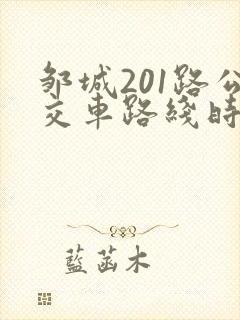 邹城201路公
交車路綫時
藍菡木